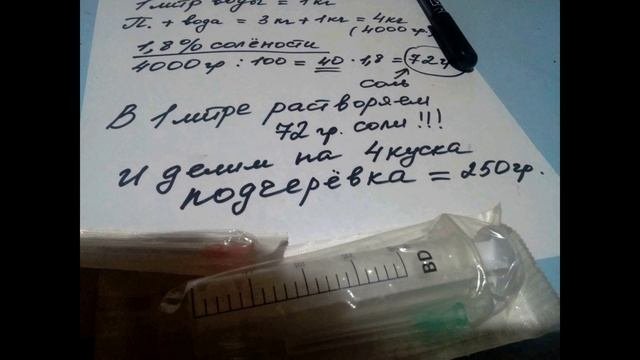 1 литр воды = 1кг
П. + вода = 3кг + 1кг = 4кг
(4000гр)
1,8% солёности
4000гр : 100 = 40 · 1,8 = 72гр
соль
В 1 литре растворяем
72 гр. соли !!!
И делим на 4 куска
подчерёвка = 250гр.
BD